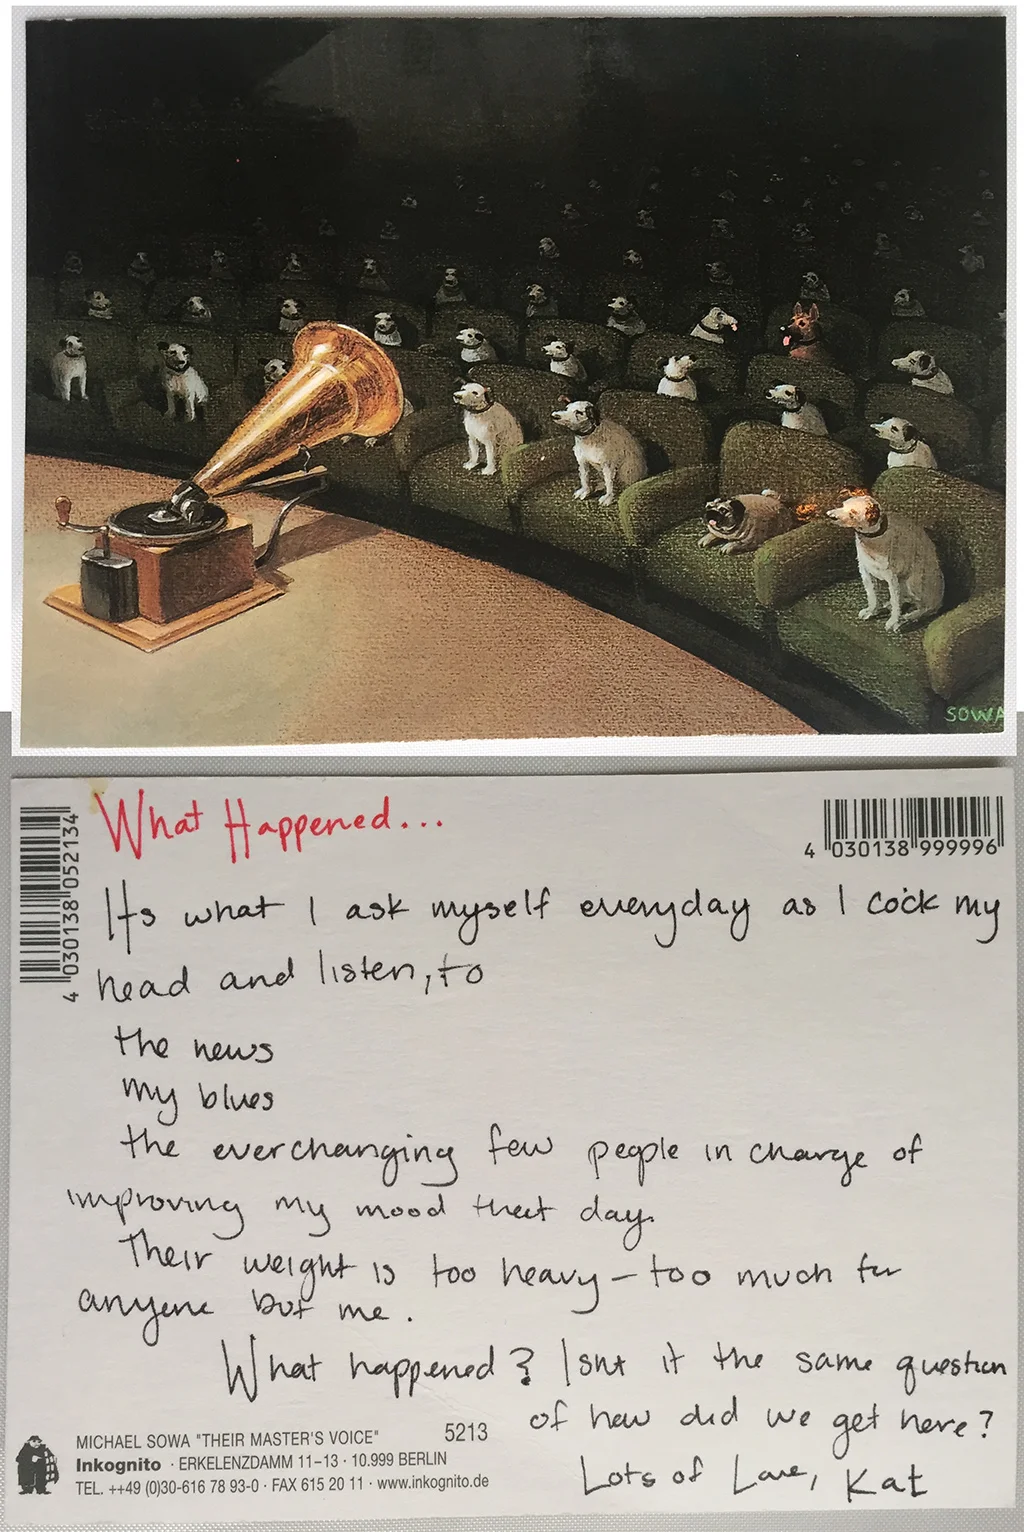 SOWA
What Happened...
4 030138 052134
4 030138 999996
Its what I ask myself everyday as I cock my
head and listen, to
the news
my blues
the everchanging few people in charge of
improving my mood that day.
Their weight is too heavy – too much for
anyone but me.
What happened? Isnt it the same question
of how did we get here?
Lots of Love, Kat
MICHAEL SOWA "THEIR MASTER'S VOICE" 5213
Inkognito · ERKELENZDAMM 11–13 · 10.999 BERLIN
TEL. ++49 (0)30-616 78 93-0 · FAX 615 20 11 · www.inkognito.de